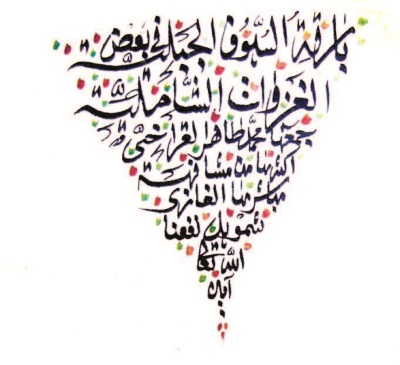 بارقة السيوف الجبلية في بعض
الغزوات الشاملية
جمعها محمد طاهر القراخى
اكثرها من مشافهة
مباشرها الغازى
شمويل نفعنا
الله تعالى
آمين